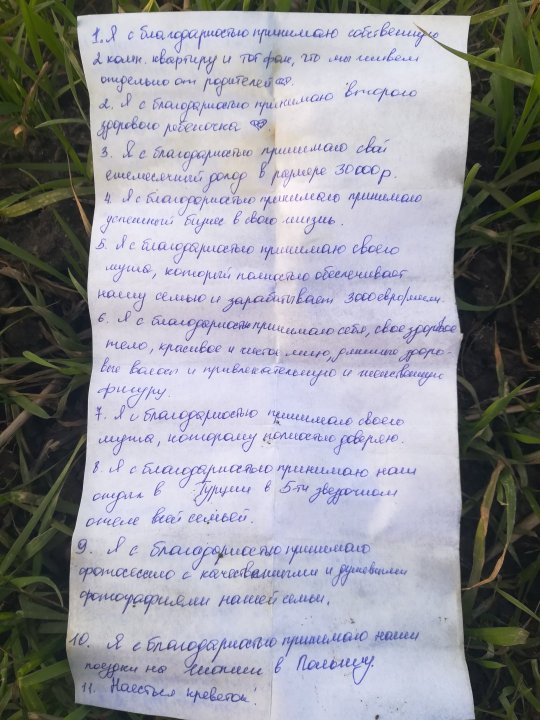 1. Я с благодарностью принимаю собственную
2 комн. квартиру и тот факт, что мы живем
отдельно от родителей
2. Я с благодарностью принимаю второго
здорового ребеночка
3. Я с благодарностью принимаю свой
ежемесячный доход в размере 30000р.
4. Я с благодарностью принимаю принимаю
успешный бизнес в свою жизнь.
5. Я с благодарностью принимаю своего
мужа, который полностью обеспечивает
нашу семью и зарабатывает 3000 евро/мес.
6. Я с благодарностью принимаю себя, свое здоровое
тело, красивое и чистое лицо, длинные здоро-
вые волосы и привлекательную и женственную
фигуру.
7. Я с благодарностью принимаю своего
мужа, которому полностью доверяю.
8. Я с благодарностью принимаю наш
отдых в Турции в 5-ти звездочном
отеле всей семьей.
9. Я с благодарностью принимаю
фотосессию с качественными и душевными
фотографиями нашей семьи.
10. Я с благодарностью принимаю наши
поездки на шопинг в Польшу.
11. Наесться креветок!